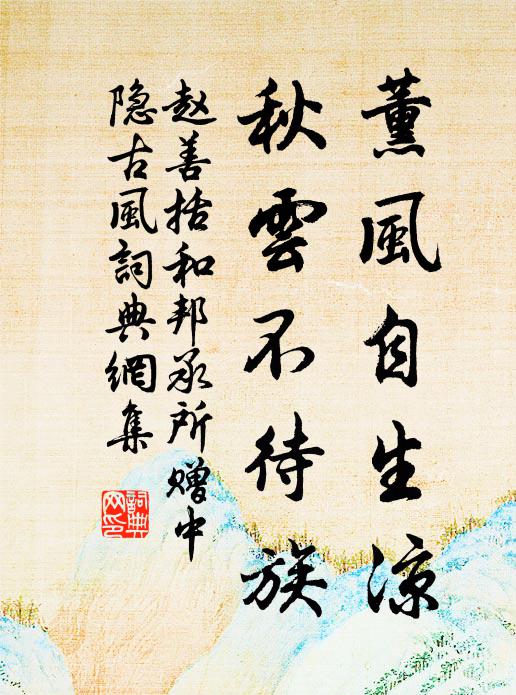 薰風自生涼
秋雲不待族
赵善括和邦承所赠中
隐古風詞典網集
詞典
网印